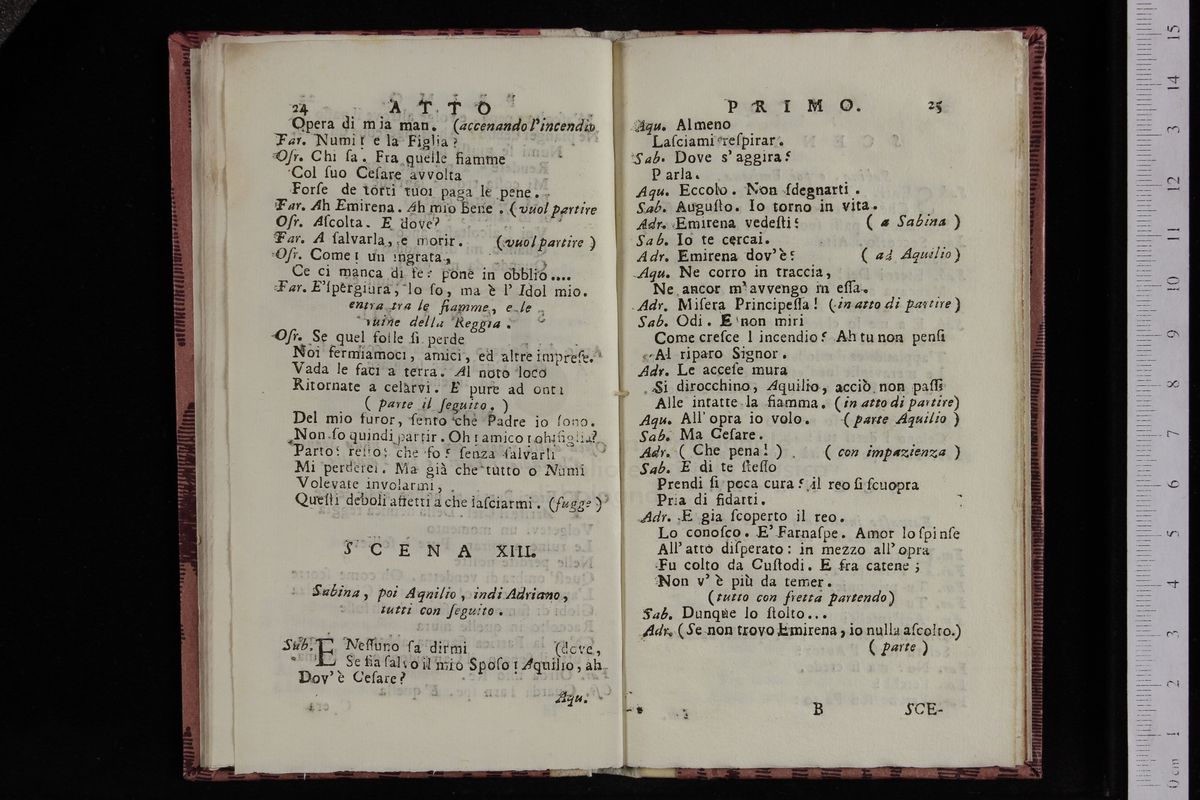 24 ATTO
Opera di mia man. (accenando l'incendio
Far. Numi! e la Figlia?
Osr. Chi sa. Fra quelle fiamme
Col suo Cesare avvolta
Forse de torti tuoi paga le pene.
Far. Ah Emirena. Ah mio bene. (vuol partire
Osr. Ascolta. E dove?
Far. A salvarla, e morir. (vuol partire)
Osr. Come! un ingrata,
Ce ci manca di fe? pone in obblio....
Far. E' spergiura, lo so, ma è l' Idol mio.
entra tra le fiamme, e le
ruine della Reggia.
Osr. Se quel folle si perde
Noi fermiamoci, amici, ed altre imprese.
Vada le faci a terra. Al noto loco
Ritornate a celarvi. E pure ad onta
(parte il seguito.)
Del mio furor, sento che Padre io sono.
Non so quindi partir. Oh! amico! oh! figlia?
Parto? resto? che fo? senza salvarli
Mi perderei. Ma già che tutto o Numi
Volevate involarmi,
Questi deboli affetti a che lasciarmi. (fugge)
SCENA XIII.
Sabina, poi Aqnilio, indi Adriano,
tutti con seguito.
Sub. E Nessuno sa dirmi (dove,
Se sia salvo il mio Sposo! Aquilio, ah
Dov' è Cesare?
Aqu.
PRIMO. 25
Aqu. Almeno
Lasciami respirar.
Sab. Dove s' aggira?
Parla.
Aqu. Eccolo. Non sdegnarti.
Sab. Augusto. Io torno in vita.
Adr. Emirena vedesti? (a Sabina)
Sab. Io te cercai.
Adr. Emirena dov' è? (ad Aquilio)
Aqu. Ne corro in traccia,
Ne ancor m' avvengo in essa.
Adr. Misera Principessa! (in atto di partire)
Sab. Odi. E non miri
Come cresce l incendio? Ah tu non pensi
Al riparo Signor.
Adr. Le accese mura
Si dirocchino, Aquilio, acciò non passi
Alle intatte la fiamma. (in atto di partire)
Aqu. All' opra io volo. (parte Aquilio)
Sab. Ma Cesare.
Adr. (Che pena!) (con impazienza)
Sab. E di te stesso
Prendi si poca cura? il reo si scuopra
Pria di fidarti.
Adr. E gia scoperto il reo.
Lo conosco. E' Farnaspe. Amor lo spinse
All' atto disperato: in mezzo all' opra
Fu colto da Custodi. E fra catene;
Non v' è più da temer.
(tutto con fretta partendo)
Sab. Dunque lo stolto...
Adr. (Se non trovo Emirena, io nulla ascolto.)
(parte)
B SCE-
15
14
13
12
11
10
9
8
7
6
5
4
3
2
1
0 cm